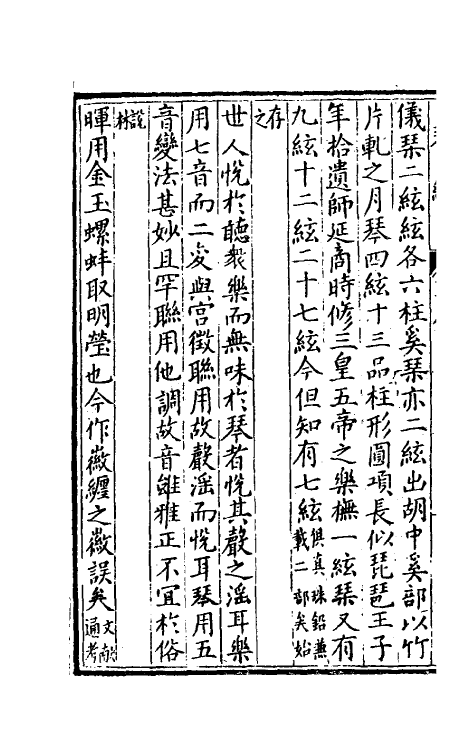 儀琹二絃絃各六柱奚琹亦二絃出胡中奚部以竹
片軋之月琴四絃十三品柱形圓項長似琵琶王子
年拾遺師延商時修三皇五帝之樂橅一絃琹又有
九絃十二絃二十七絃今但知有七絃俱真珠船兼載二部矣始
存之
世人悅於聽衆樂而無味於琴者悅其聲之滛耳樂
用七音而二変與宮徵聯用故聲滛而悅耳琴用五
音變法甚妙且罕聯用他調故音雖雅正不宜於俗
說林
暉用金玉螺蚌取明瑩也今作徽纏之徽誤矣文献通考